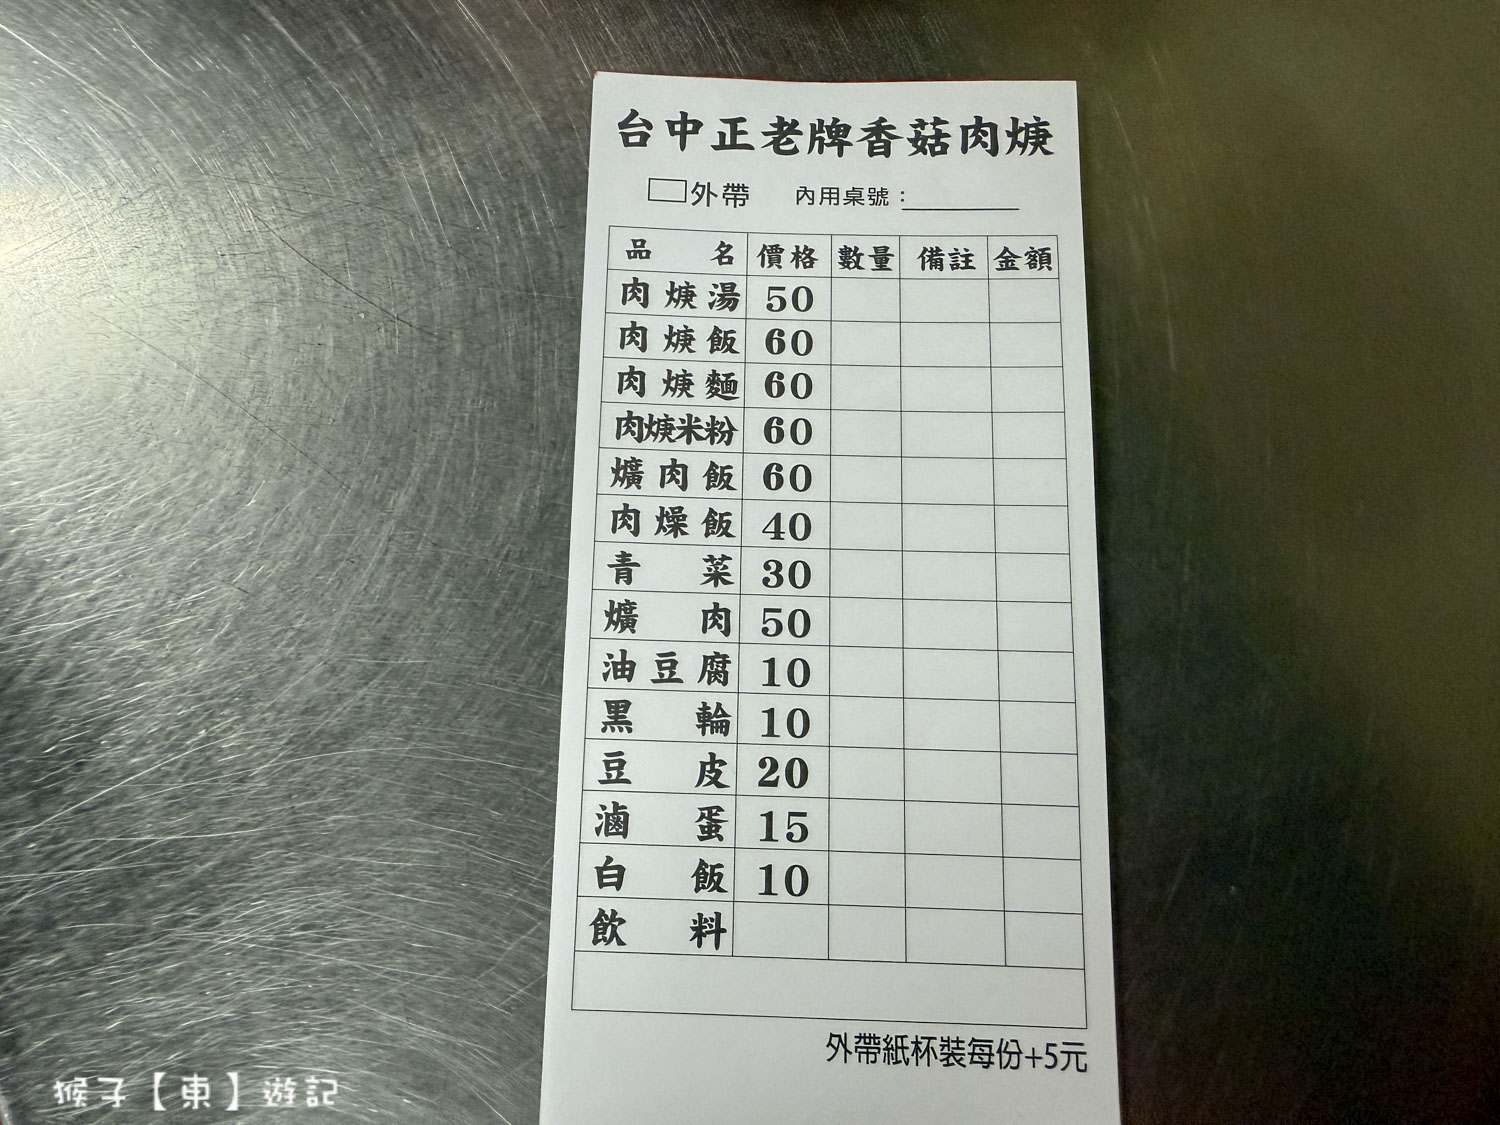 台中正老牌香菇肉焿
外帶 內用桌號：
品名 價格 數量 備註 金額
肉焿湯 50
肉焿飯 60
肉焿麵 60
肉焿米粉 60
爌肉飯 60
肉燥飯 40
青菜 30
爌肉 50
油豆腐 10
黑輪 10
豆皮 20
滷蛋 15
白飯 10
飲料
外帶紙杯裝每份+5元
猴子【東】遊記